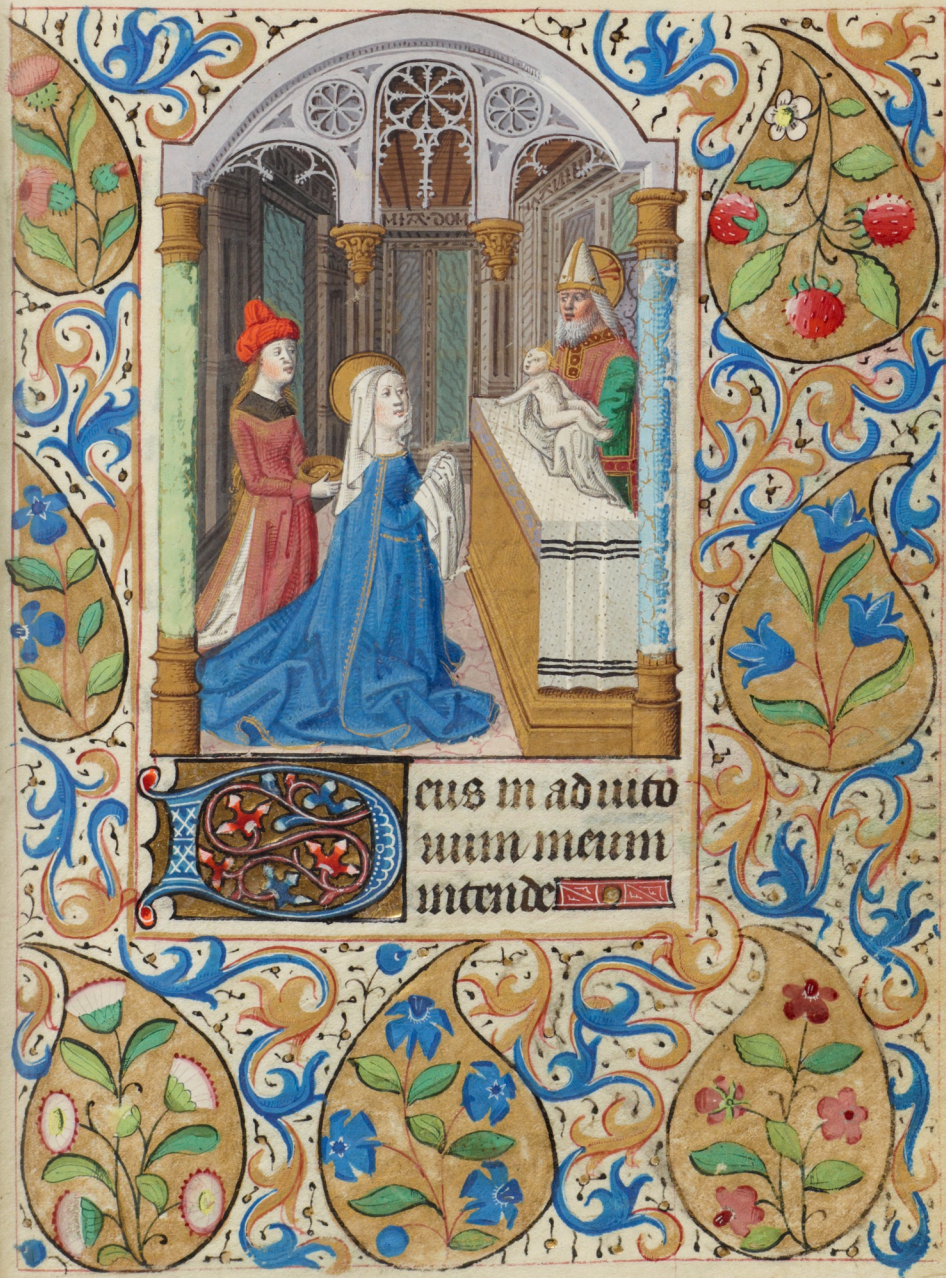 MIA·DOM
Deus in adiuto
rium meum
intende